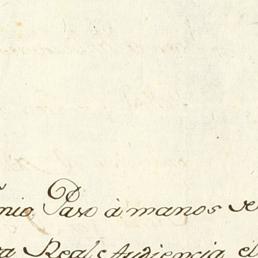 nio, Paso à manos de
Real Audiencia el